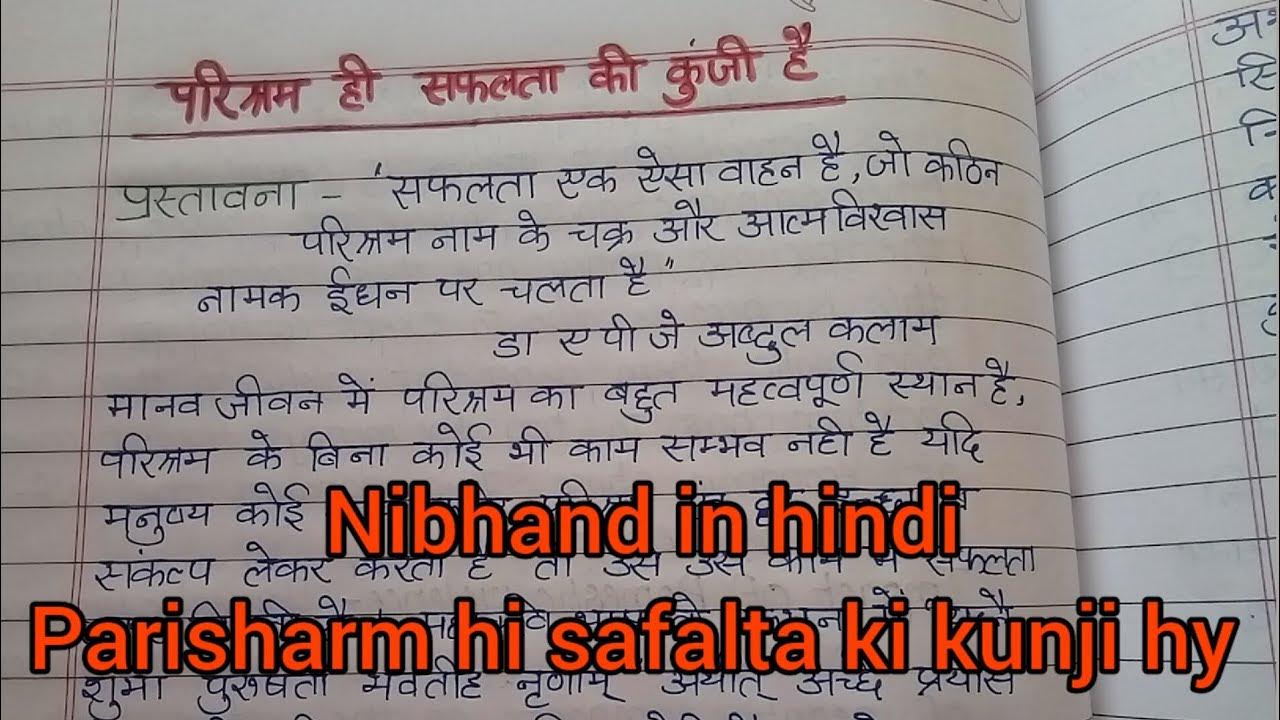 परिश्रम ही सफलता की कुंजी है
प्रस्तावना - 'सफलता एक ऐसा वाहन है, जो कठिन
परिश्रम नाम के चक्र और आत्मविश्वास
नामक ईधन पर चलता है"
डा ए पी जे अब्दुल कलाम
मानव जीवन में परिश्रम का बहुत महत्वपूर्ण स्थान है,
परिश्रम के बिना कोई भी काम सम्भव नही है यदि
मनुष्य कोई
Nibhand in hindi
संकल्प लेकर करता है तो उसे उस काम में सफलता
Parisharm hi safalta ki kunji hy
पुरुषता नृणाम् अर्थात् अच्छे प्रयास